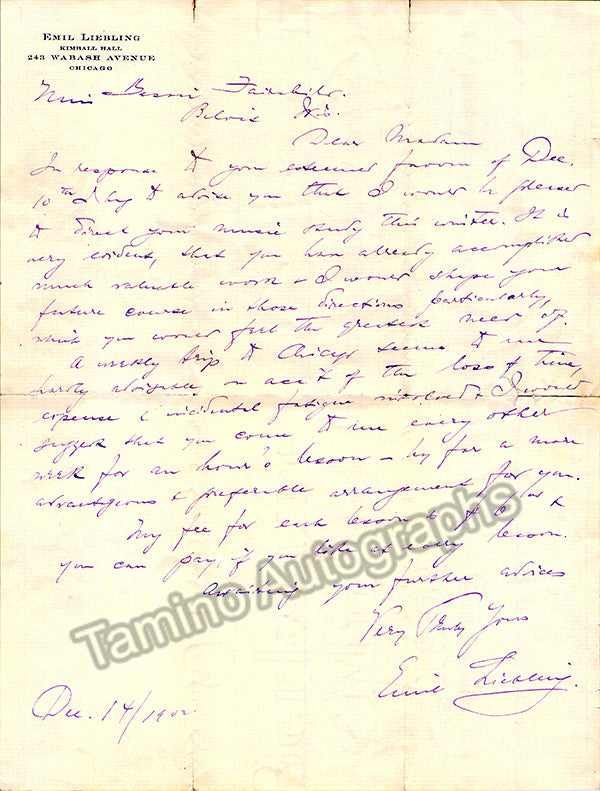 EMIL LIEBLING
KIMBALL HALL
243 WABASH AVENUE
CHICAGO
Miss Bessie Fairchild.
Beloit Wis.
Dear Madam
In response to your esteemed favor of Dec.
10th I beg to advise you that I would be pleased
to direct your music study this winter. It is
very evident, that you have already accomplished
much valuable work & I would shape your
future course in those directions particularly,
which you would feel the greatest need of.
A weekly trip to Chicago seems to me
hardly advisable on acc't of the loss of time,
expense & incidental fatigue involved & I would
suggest that you come to me every other
week for an hour's lesson – by far a more
advantageous & preferable arrangement for you.
My fee for each lesson is
you can pay, if you like at each lesson.
Awaiting your further advices
Very Truly Yours
Emil Liebling.
Dec. 14/1902
Tamino Autographs